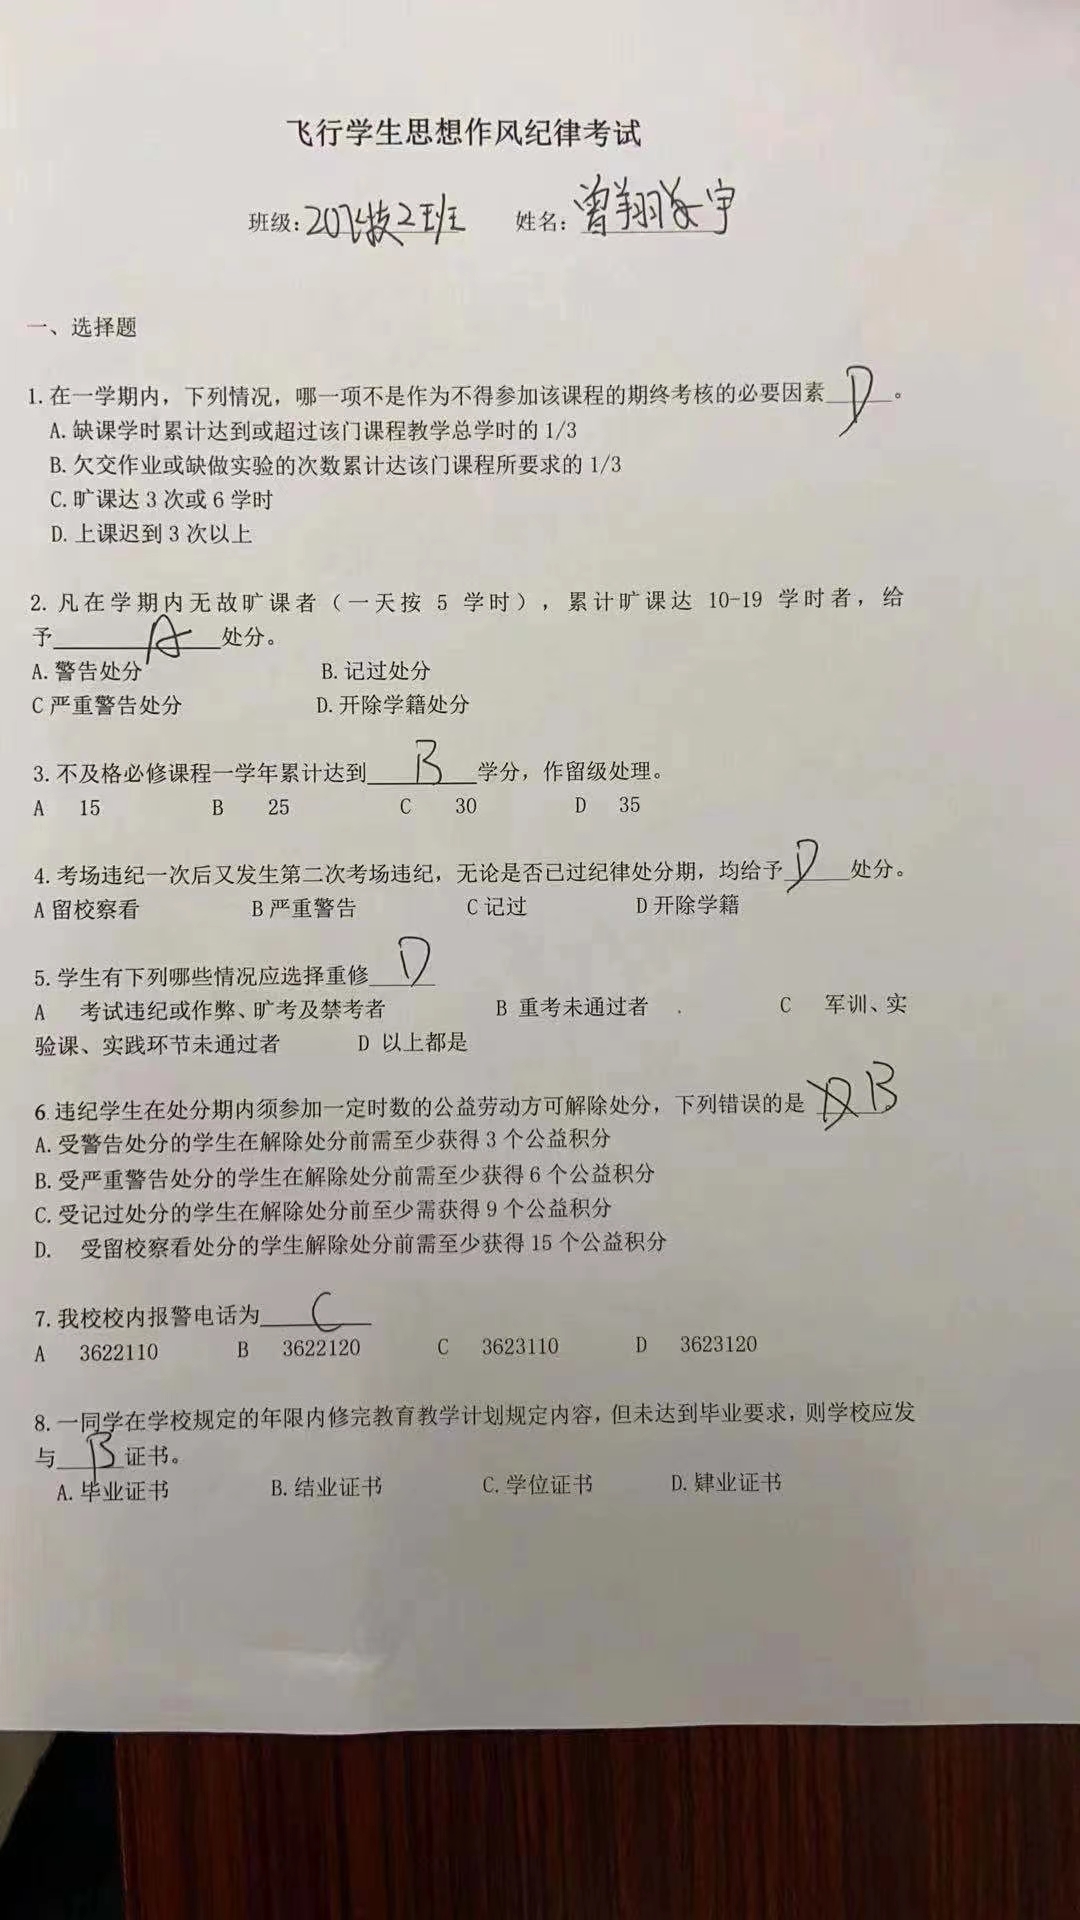 飞行学生思想作风纪律考试
班级: 20飞技2班 姓名: 曾翔宇
一、选择题
1.在一学期内，下列情况，哪一项不是作为不得参加该课程的期终考核的必要因素 D 。
A.缺课学时累计达到或超过该门课程教学总学时的 1/3
B.欠交作业或缺做实验的次数累计达该门课程所要求的 1/3
C.旷课达 3 次或 6 学时
D.上课迟到 3 次以上
2. 凡在学期内无故旷课者（一天按 5 学时），累计旷课达 10-19 学时者，给
予 A 处分。
A.警告处分 B.记过处分
C 严重警告处分 D.开除学籍处分
3.不及格必修课程一学年累计达到 B 学分，作留级处理。
A 15 B 25 C 30 D 35
4.考场违纪一次后又发生第二次考场违纪，无论是否己过纪律处分期，均给予 D 处分。
A 留校察看 B 严重警告 C 记过 D 开除学籍
5.学生有下列哪些情况应选择重修 D
A 考试违纪或作弊、旷考及禁考者 B 重考未通过者 C 军训、实
验课、实践环节未通过者 D 以上都是
6.违纪学生在处分期内须参加一定时数的公益劳动方可解除处分，下列错误的是 B
A.受警告处分的学生在解除处分前需至少获得 3 个公益积分
B.受严重警告处分的学生在解除处分前需至少获得 6 个公益积分
C.受记过处分的学生在解除处分前至少需获得 9 个公益积分
D. 受留校察看处分的学生解除处分前需至少获得 15 个公益积分
7.我校校内报警电话为 C
A 3622110 B 3622120 C 3623110 D 3623120
8.一同学在学校规定的年限内修完教育教学计划规定内容，但未达到毕业要求，则学校应发
与 B 证书。
A.毕业证书 B.结业证书 C.学位证书 D.肄业证书